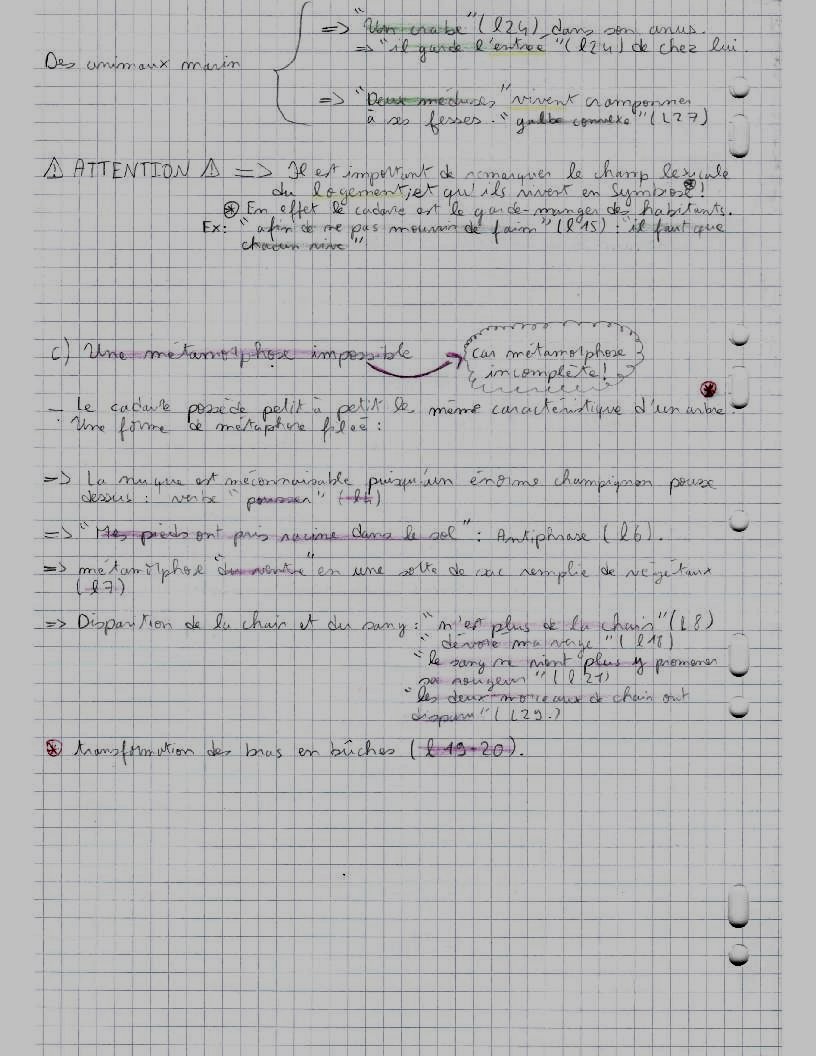 => "Un crabe" (l24) dans son anus.
=> "il garde l'entrée" (l24) de chez lui.
Des animaux marin
=> "Deux méduses" "vivent cramponner
à ses fesses. "galbe convexe" (L27)
⚠ ATTENTION ⚠ => Il est important de remarquer le champ lexicale
du logement, et qu'ils vivent en symbose* !
* En effet le cadavre est le garde-manger des habitants.
Ex: "afin de ne pas mourrir de faim" (l15) : "il faut que
chacun vive"
c) Une métamorphose impossible
car métamorphose
incomplète !
- Le cadavre possède petit à petit le même caractéristique d'un arbre. *
Une forme de métaphore filée :
=> La nuque est méconnaisable puisqu'un énorme champignon pousse
dessus : verbe "pousser" (l4)
=> "Mes pieds ont pris racine dans le sol" : Antiphrase (l6).
=> métamorphose "du ventre" en une sorte de sac remplie de végétaux
(l7)
=> Disparition de la chair et du sang : "n'est plus de la chair" (L8)
"dévoré ma verge" (l18)
"le sang ne vient plus y promener
sa rougeur" (l21)
"les deux morceaux de chair ont
disparu" (L29.)
* transformation des bras en bûches (l 19-20).